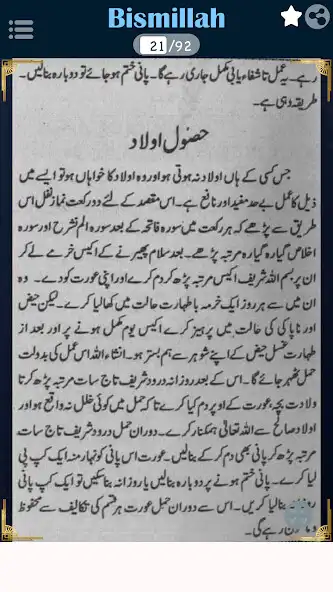 Bismillah
21/92
رہے۔ یہ عمل تا شفاء یابی مکمل جاری رہے گا۔ پانی ختم ہو جائے تو دوبارہ بنالیں۔
طریقہ وہی ہے۔
حصول اولاد
جس کسی کے ہاں اولاد نہ ہوتی ہو اور وہ اولاد کا خواہاں ہو تو ایسے میں
ذیل کا عمل بے حد مفید اور نافع ہے۔ اس مقصد کے لئے دو رکعت نماز نفل اس
طریق سے پڑھے کہ ہر رکعت میں سورہ فاتحہ کے بعد سورہ الم نشرح اور سورہ
اخلاص گیارہ گیارہ مرتبہ پڑھے۔ بعد سلام پھیرنے کے اکیس خرمے لے کر
ان پر بسم اللہ شریف اکیس مرتبہ پڑھ کر دم کرے اور اپنی عورت کو دے۔ وہ
ان میں سے ہر روز ایک خرمہ با طہارت حالت میں کھا لیا کرے۔ لیکن حیض
اور ناپاکی کی حالت میں پرہیز کرے اکیس یوم مکمل ہونے پر اور بعد از
طہارت غسل حیض کے اپنے شوہر سے ہم بستر ہو۔ انشاء اللہ اس عمل کی بدولت
حمل ٹھہر جائے گا۔ اس کے بعد روزانہ درود شریف تاج سات مرتبہ پڑھ کر تا
ولادت بچہ عورت کے اوپر دم کیا کرے تا کہ حمل میں کوئی خلل نہ واقع ہو اور
اولاد صالح سے اللہ تعالی ہمکنار کرے۔ دوران حمل درود شریف تاج سات
مرتبہ پڑھ کر پانی بھی دم کر کے بنالیں۔ عورت اس پانی کو نہار منہ ایک کپ پی
لیا کرے۔ پانی ختم ہونے پر دوبارہ بنالیں یا روزانہ بنا سکیں تو ایک کپ پانی
بنا لیا کریں۔ اس سے دوران حمل عورت ہر قسم کی تکالیف سے محفوظ
رہے گی۔